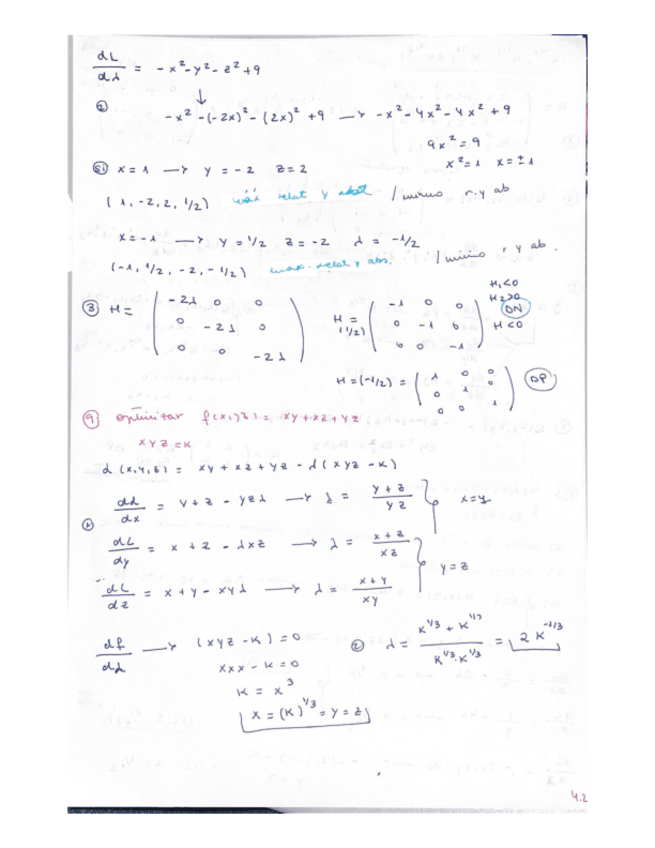 dL/dλ = -x²-y²-z²+9
② ↓
-x²-(-2x)²-(2x)²+9 → -x²-4x²-4x²+9
9x²=9
x²=1 x=±1
Si x=1 → y=-2 z=2
(1,-2,2,1/2) máx relat y abs / mínimo r.y ab
x=-1 → y=1/2 z=-2 λ=-1/2
(-1,1/2,-2,-1/2) max. relat y abs. / mínimo r y ab.
③ H = ( -2λ 0 0
0 -2λ 0
0 0 -2λ )
H = (1/2) ( -1 0 0
0 -1 0
0 0 -1 )
H₁<0
H₂>0
DN
H<0
H=(-1/2) = ( 1 0 0
0 1 0
0 0 1 ) DP
⑨ optimizar f(x,y,z) = xy+xz+yz
xyz=k
L(x,y,z) = xy+xz+yz-λ(xyz-k)
① dL/dx = y+z-yzλ → λ = (y+z)/(yz)
x=y
dL/dy = x+z-λxz → λ = (x+z)/(xz)
y=z
dL/dz = x+y-xyλ → λ = (x+y)/(xy)
df/dλ → (xyz-k)=0
xxx-k=0
k=x³
x=(k)^1/3=y=z
② λ = (k^1/3+k^1/3)/(k^1/3·k^1/3) = 2k^-1/3
4.2